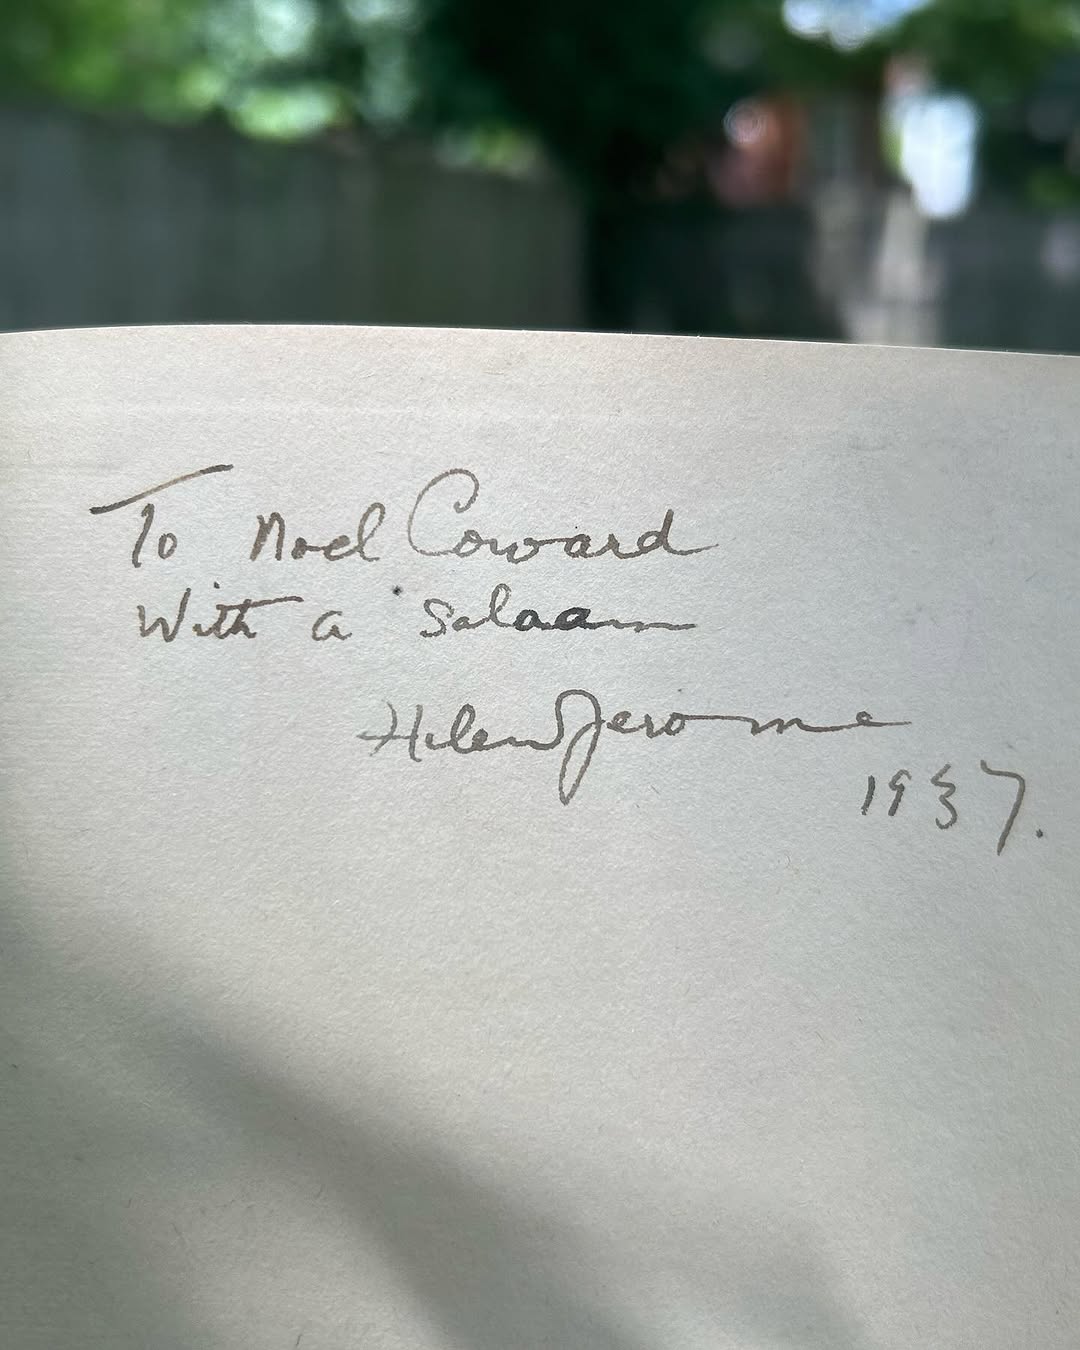 To Noel Coward
With a Salaam
Helen Jerome
1937.